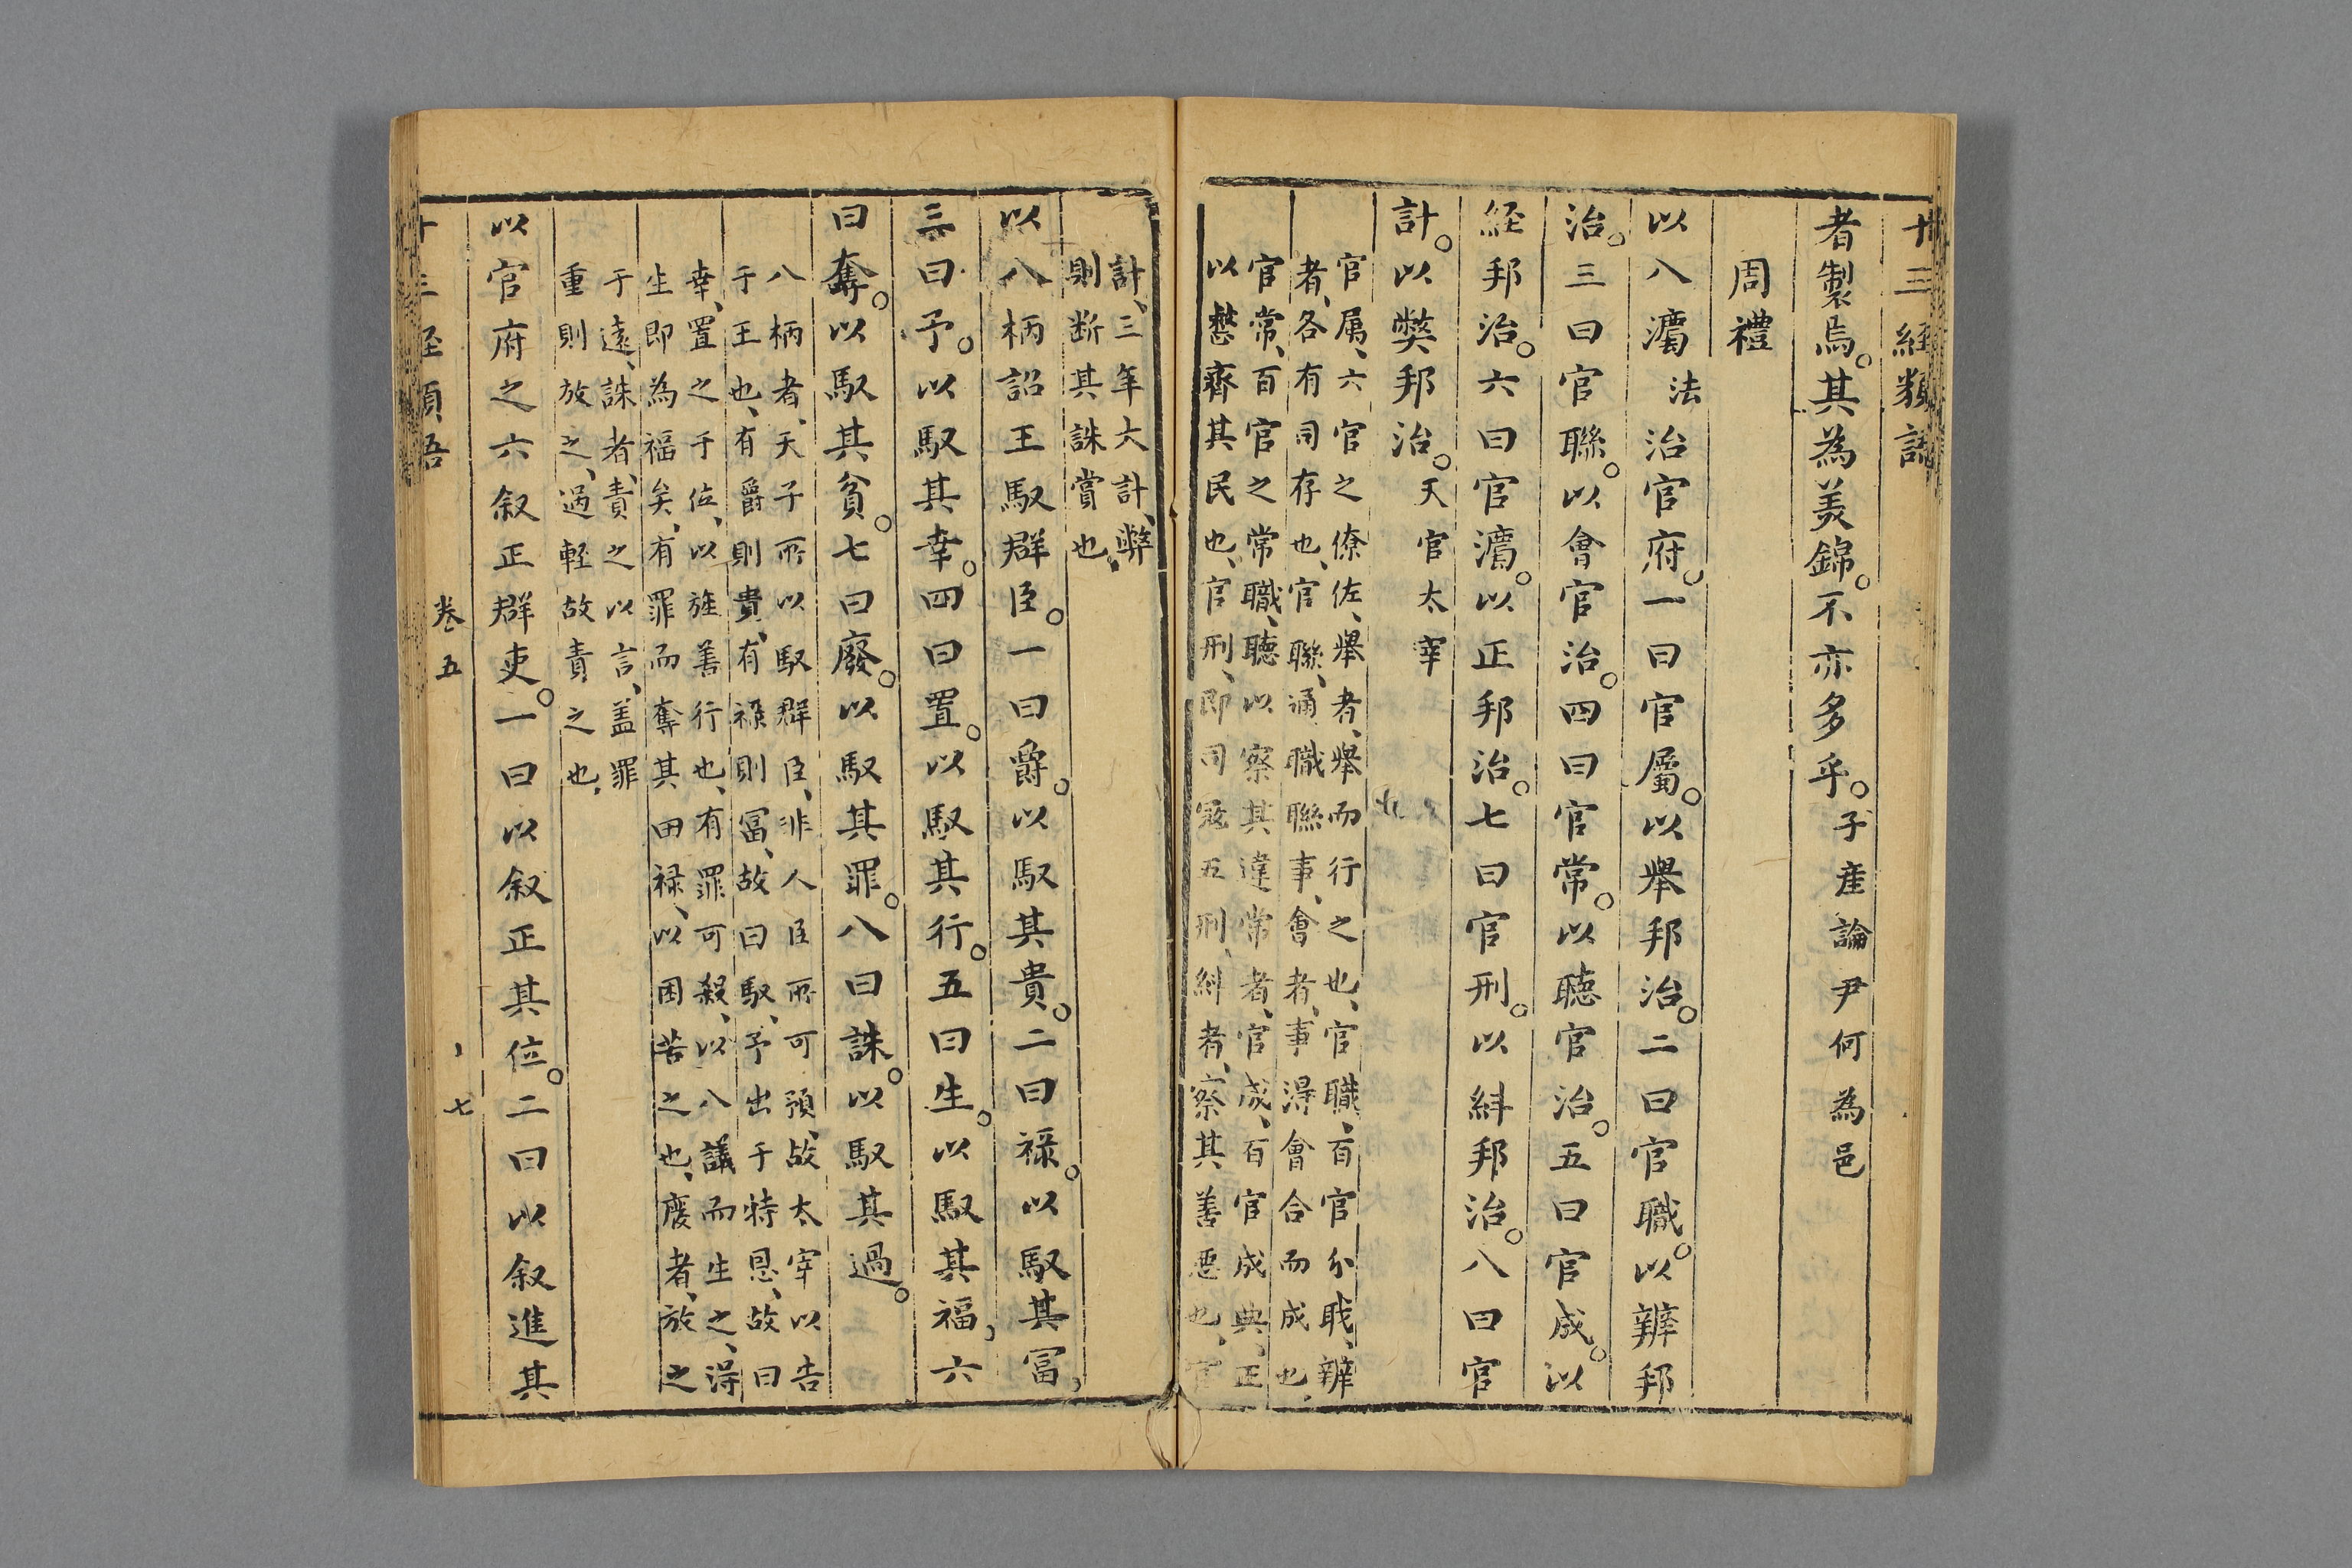 十三經類語
者製焉其為美錦不亦多乎子産論尹何為邑
周禮
以八灋法治官府一曰官屬以舉邦治二曰官職以辨邦
治三曰官聯以會官治四曰官常以聽官治五曰官成以
経邦治六曰官灋以正邦治七曰官刑以糾邦治八曰官
計以弊邦治天官太宰
官属、六官之僚佐、舉者、舉而行之也、官職、百官分職、辨
者、各有司存也、官聯、通職聯事、會者、事淂會合而成也、
官常、百官之常職、聽以察其違常者、官成、百官成典、正
以整齊其民也、官刑、即司寇五刑、糾者、察其善悪也、官
計、三年大計、弊
則断其誅賞也、
以八柄詔王馭群臣一曰爵以馭其貴二曰禄以馭其冨
三曰予以馭其幸四曰置以馭其行五曰生以馭其福六
曰奪以馭其貧七曰廢以馭其罪八曰誅以馭其過
八柄者、天子所以馭群臣、非人臣所可預、故太宰以告
于王也、有爵則貴、有禄則冨、故曰馭、予出于特恩、故曰
幸、置之于位、以旌善行也、有罪可殺、以八議而生之、淂
生即為福矣、有罪而奪其田禄、以困苦之也、廢者、放之
于遠、誅者、責之以言、盖罪
重則放之、過軽故責之也、
以官府之六叙正群吏一曰以叙正其位二曰以叙進其
十三経類語 卷五 七